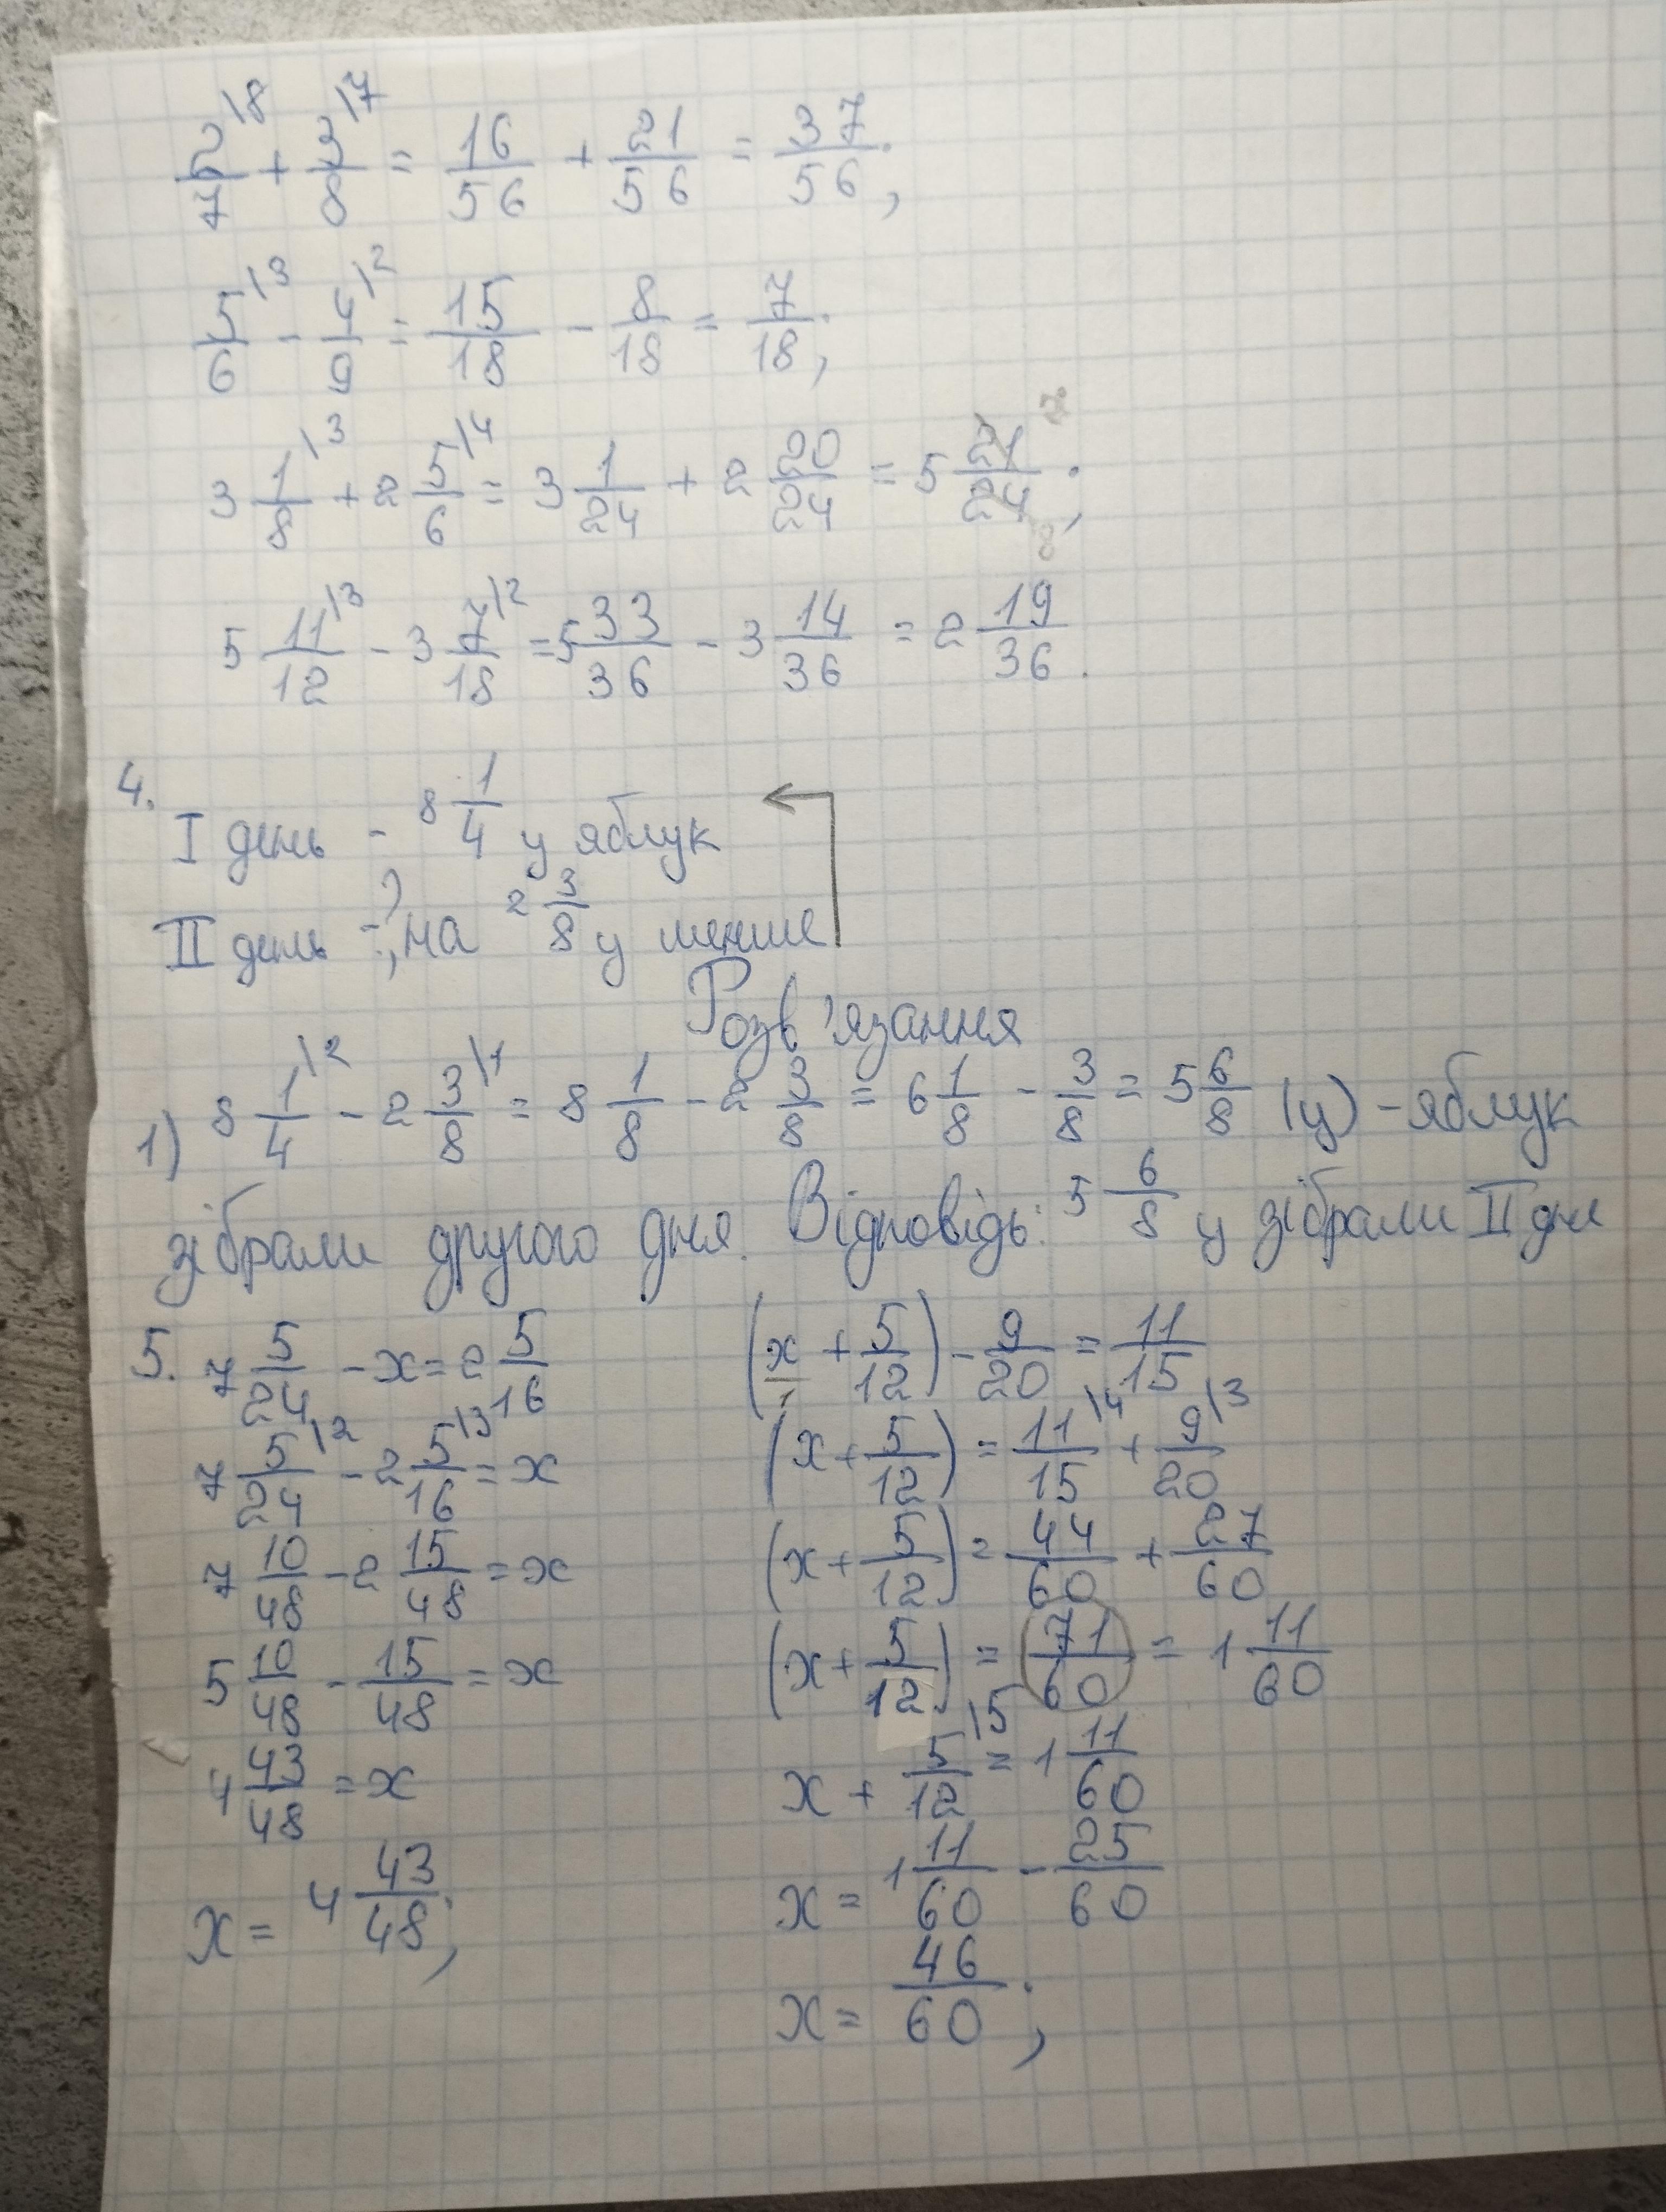 2/7 \8 + 3/8 \7 = 16/56 + 21/56 = 37/56;
5/6 \3 - 4/9 \2 = 15/18 - 8/18 = 7/18;
3 1/8 \3 + 2 5/6 \4 = 3 1/24 + 2 20/24 = 5 21/24;
5 11/12 \3 - 3 7/18 \2 = 5 33/36 - 3 14/36 = 2 19/36.
4.
I день - 8 1/4 ц яблук
II день - ?, на 2 3/8 ц менше
Розв'язання
1) 8 1/4 \2 - 2 3/8 \1 = 8 1/8 - 2 3/8 = 6 1/8 - 3/8 = 5 6/8 (ц) - яблук
зібрали другого дня. Відповідь: 5 6/8 ц зібрали II дня
5. 7 5/24 - x = 2 5/16
7 5/24 \2 - 2 5/16 \3 = x
7 10/48 - 2 15/48 = x
5 10/48 - 15/48 = x
4 43/48 = x
x = 4 43/48;
(x + 5/12) - 9/20 = 11/15
(x + 5/12) = 11/15 \4 + 9/20 \3
(x + 5/12) = 44/60 + 27/60
(x + 5/12) = 71/60 = 1 11/60
x + 5/12 \5 = 1 11/60
x = 1 11/60 - 25/60
x = 46/60;